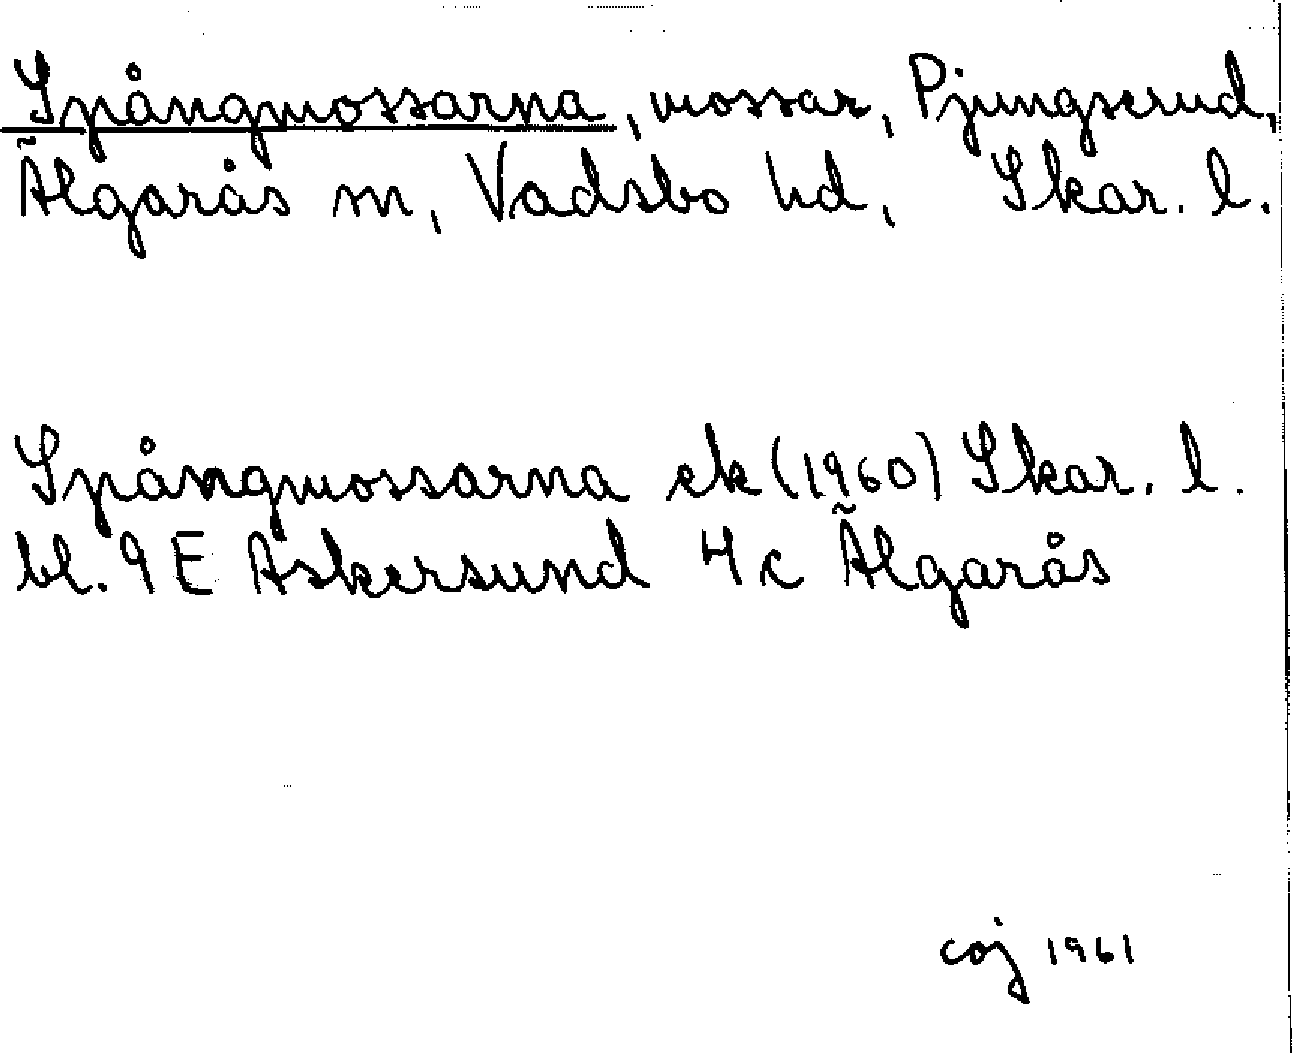 Spångmossarna, mossar, Pjungserud,
Älgarås sn, Vadsbo hd, Skar. l.
Spångmossarna ek (1960) Skar. l.
bl. 9E Askersund 4c Älgarås
coj 1961